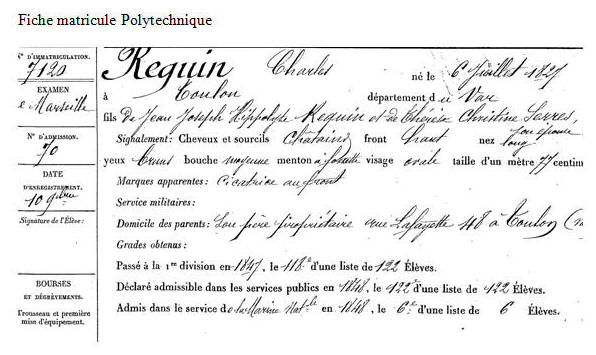 Fiche matricule Polytechnique
N° D'IMMATRICULATION.
7120
EXAMEN
e Marseille
N° D'ADMISSION.
70
DATE
D'ENREGISTREMENT.
10 9bre
Signature de l'Élève:
BOURSES
ET
DÉGRÈVEMENTS.
Trousseau et première
mise d'équipement.
Requin Charles né le 6 Juillet 1827
à Toulon département du Var
fils De Jean Joseph Hippolyte Requin et de Thérèse Christine Serres,
Signalement: Cheveux et sourcils Châtains front haut nez long
yeux bruns bouche moyenne menton à fossette visage ovale taille d'un mètre 77 centim
Marques apparentes: cicatrice au front
Service militaires:
Domicile des parents: Son père propriétaire rue Lafayette 48 à Toulon
Grades obtenus:
Passé à la 1re division en 1847, le 118e d'une liste de 122 Élèves.
Déclaré admissible dans les services publics en 1848, le 122e d'une liste de 122 Élèves.
Admis dans le service de la Marine Natle en 1848, le 6e d'une liste de 6 Élèves.